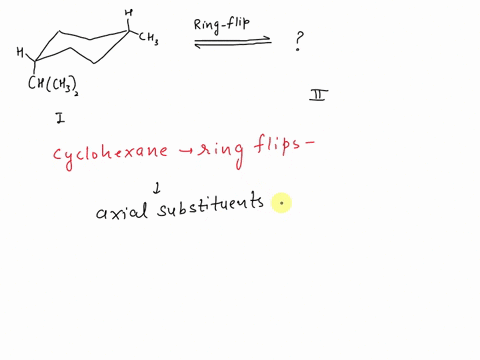 H
CH₃
H
CH(CH₃)₂
Ring-flip
?
I
II
cyclohexane → ring flips -
axial substituents